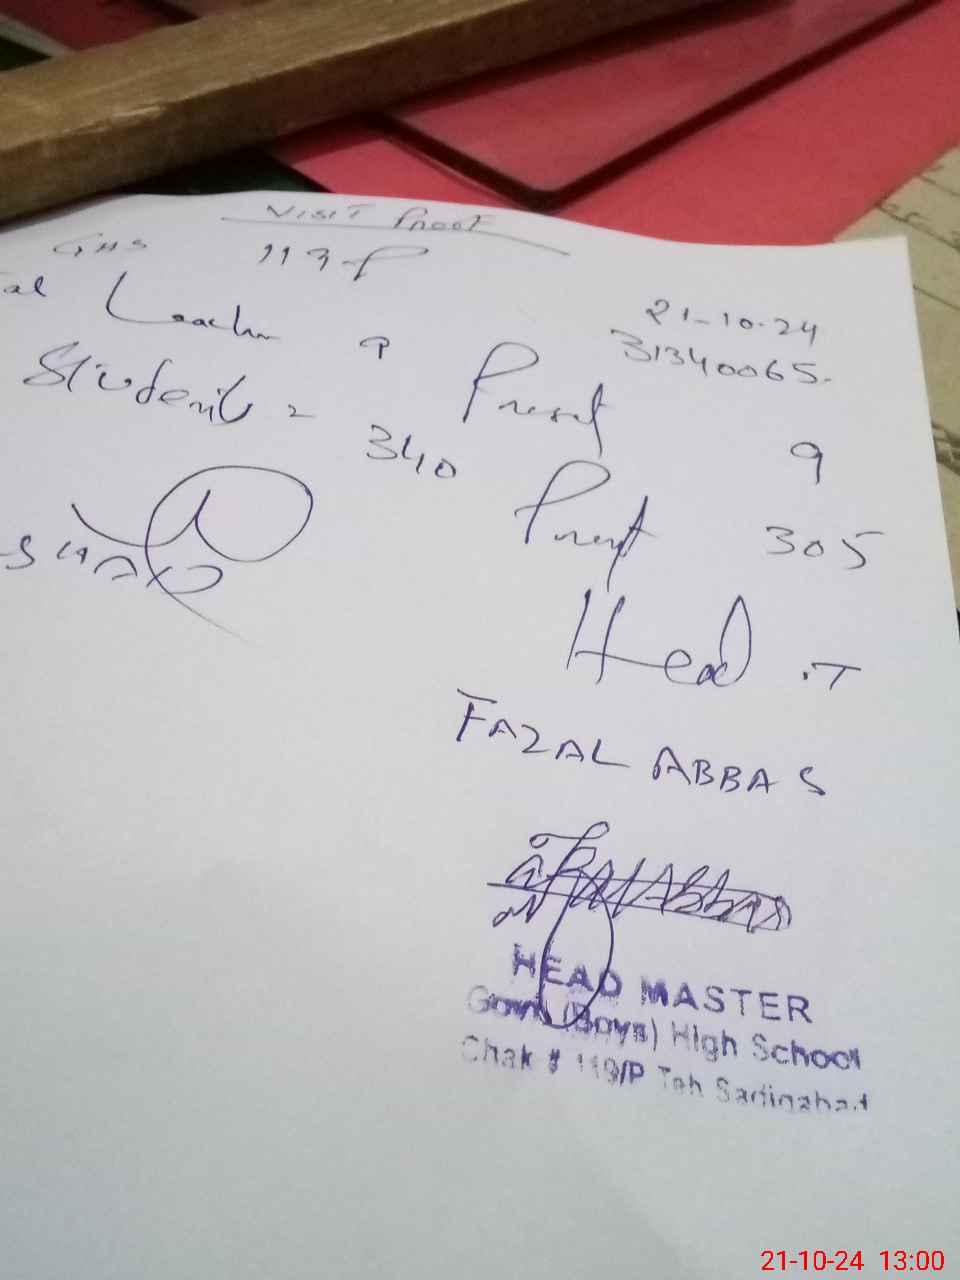 VISIT PROOF
GHS 119-P
21-10-24
31340065.
Teacher 9 Present 9
Student = 340 Present 305
Head .T
FAZAL ABBAS
HEAD MASTER
Govt. (Boys) High School
Chak # 119/P Teh Sadiqabad
21-10-24 13:00